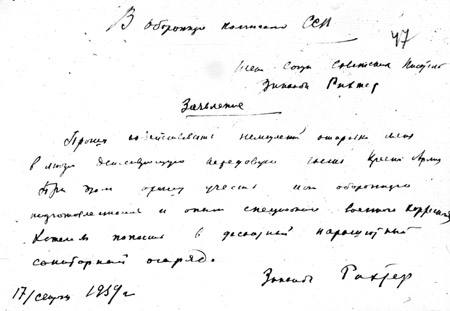 В оборонную комиссию ССП
47
член Союза Советских Писателей
Зинаида Рихтер
Заявление
Прошу немедленно отправить меня
в любую действующую передовую часть Красной Армии
При этом прошу учесть мою оборонную
подготовленность и опыт специального военного корреспон
Хотела попасть в десантный парашутный
санитарный отряд.
Зинаида Рихтер
17/сент 1939 г